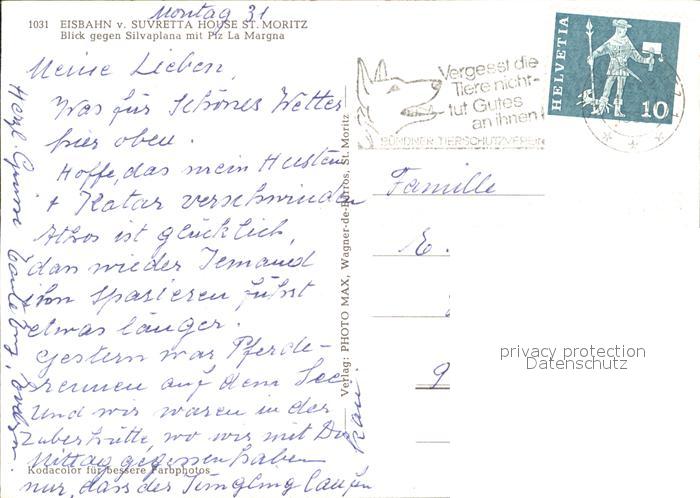 Montag 31
1031 EISBAHN v. SUVRETTA HOUSE ST. MORITZ
Blick gegen Silvaplana mit Piz La Margna
Meine Lieben,
Was für schönes Wetter
hier oben.
Hoffe, das mein Husten
+ Katar verschwinden
Athos ist glücklich,
dan wieder Jemand
ihn spazieren führt
etwas länger.
Gestern war Pferde-
rennen auf dem See
Und wir waren in der
wo wir mit
Mittag gegessen haben
nur, dass der Jüngling laufen
kan.
Herzl.
Kodacolor für bessere Farbphotos
Verlag: PHOTO MAX, Wagner-de-Barros, St. Moritz
Vergesst die
Tiere nicht-
tut Gutes
an ihnen!
BÜNDNER TIERSCHUTZVEREIN
HELVETIA
10
Famille
E.
9
privacy protection
Datenschutz